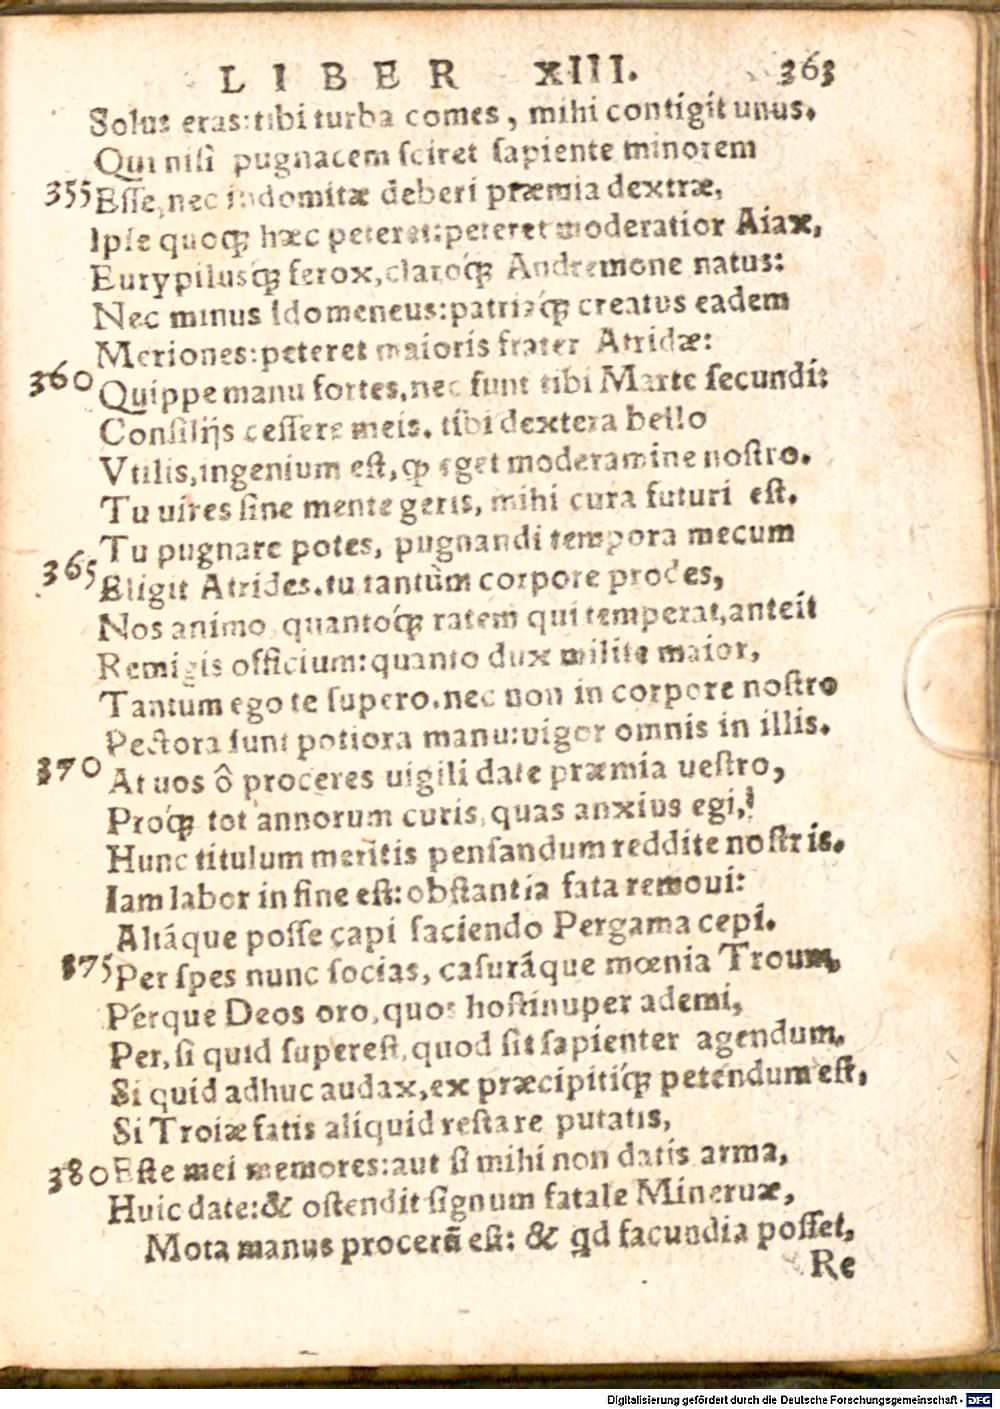 LIBER XIII. 363
Solus eras: tibi turba comes, mihi contigit unus.
Qui nisi pugnacem sciret sapiente minorem
355 Esse, nec indomitæ deberi præmia dextræ,
Ipse quoqꝫ hæc peteret: peteret moderatior Aiax,
Eurypilusq́ꝫ ferox, claroq́ꝫ Andremone natus:
Nec minus Idomeneus: patriaq́ꝫ creatus eadem
Meriones: peteret maioris frater Atridæ:
360 Quippe manu fortes, nec sunt tibi Marte secundi:
Consilijs cessere meis. tibi dextera bello
Vtilis, ingenium est, qꝫ eget moderamine nostro.
Tu uires sine mente geris, mihi cura futuri est.
Tu pugnare potes, pugnandi tempora mecum
365 Eligit Atrides. tu tantùm corpore prodes,
Nos animo, quantoq́ꝫ ratem qui temperat, anteit
Remigis officium: quanto dux milite maior,
Tantum ego te supero. nec non in corpore nostro
Pectora sunt potiora manu: uigor omnis in illis.
370 At uos ô proceres uigili date præmia uestro,
Proq́ꝫ tot annorum curis, quas anxius egi,
Hunc titulum meritis pensandum reddite nostris.
Iam labor in fine est: obstantia fata remoui:
Altáque posse capi faciendo Pergama cepi.
375 Per spes nunc socias, casuráque mœnia Troum,
Pérque Deos oro, quos hosti nuper ademi,
Per, si quid superest, quod sit sapienter agendum.
Si quid adhuc audax, ex præcipitiq́ꝫ petendum est,
Si Troiæ fatis aliquid restare putatis,
380 Este mei memores: aut si mihi non datis arma,
Huic date: & ostendit signum fatale Mineruæ,
Mota manus procerũ est: & qd facundia posset,
Re
Digitalisierung gefördert durch die Deutsche Forschungsgemeinschaft - DFG